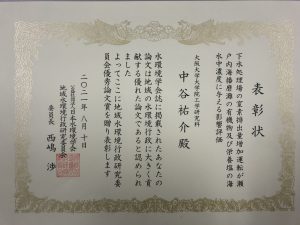 表彰状
下水処理場の窒素排出量増加運転が瀬
戸内海播磨灘の有機物及び栄養塩の海
水中濃度に与える影響評価
大阪大学大学院工学研究科
中谷祐介殿
水環境学会誌に掲載されたあなたの
論文は地域の水環境行政に大きく貢
献する優れた論文であると認められ
ました
よってここに地域水環境行政研究委
員会優秀論文賞を贈り表彰します
二〇二一年八月十日
公益社団法人日本水環境学会
地域水環境行政研究委員会
委員長 西嶋 渉